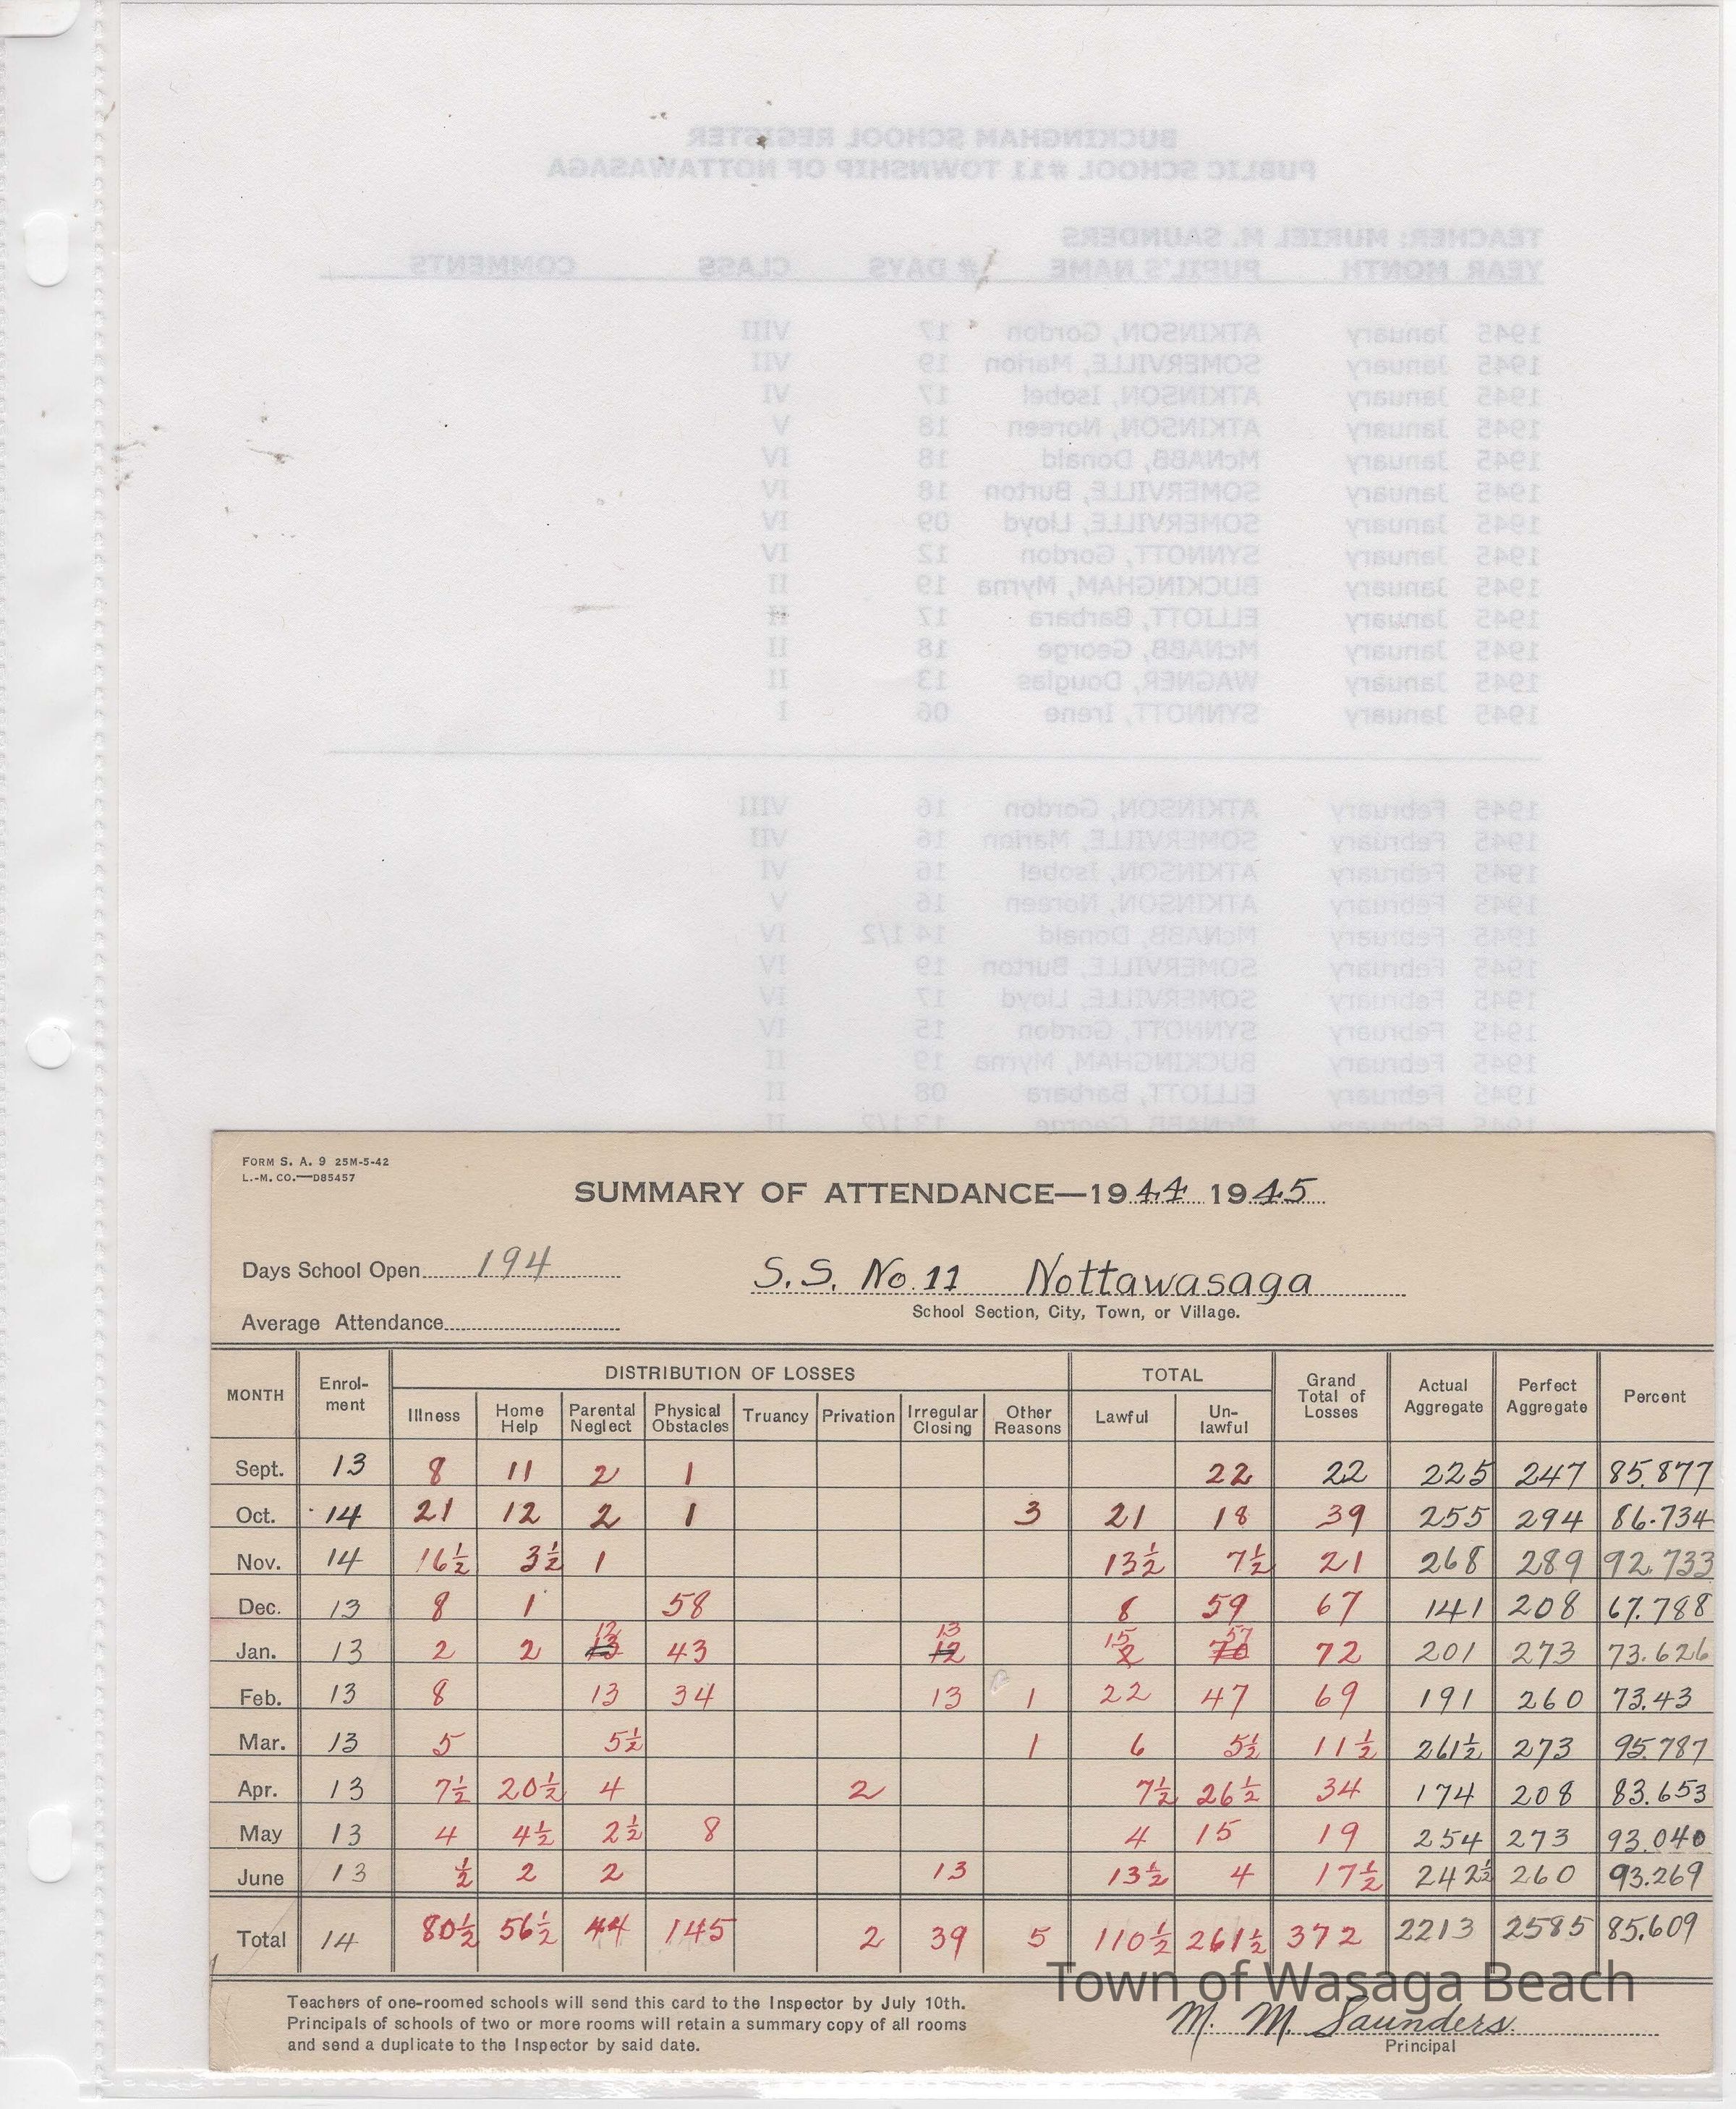 BUCKINGHAM SCHOOL REGISTER
PUBLIC SCHOOL #11 TOWNSHIP OF NOTTAWASAGA
TEACHER: MURIEL M. SAUNDERS
YEAR MONTH PUPIL'S NAME # DAYS CLASS COMMENTS
1945 January ATKINSON, Gordon 17 VIII
1945 January SOMERVILLE, Marion 19 VII
1945 January ATKINSON, Isobel 17 VI
1945 January ATKINSON, Noreen 18 V
1945 January McNABB, Donald 18 IV
1945 January SOMERVILLE, Burton 18 IV
1945 January SOMERVILLE, Lloyd 09 IV
1945 January SYNNOTT, Gordon 12 IV
1945 January BUCKINGHAM, Myrna 19 II
1945 January ELLIOTT, Barbara 17 II
1945 January McNABB, George 18 II
1945 January WAGNER, Douglas 13 II
1945 January SYNNOTT, Irene 06 I
1945 February ATKINSON, Gordon 16 VIII
1945 February SOMERVILLE, Marion 16 VII
1945 February ATKINSON, Isobel 16 VI
1945 February ATKINSON, Noreen 16 V
1945 February McNABB, Donald 14 1/2 IV
1945 February SOMERVILLE, Burton 19 IV
1945 February SOMERVILLE, Lloyd 17 IV
1945 February SYNNOTT, Gordon 15 IV
1945 February BUCKINGHAM, Myrna 19 II
1945 February ELLIOTT, Barbara 08 II
1945 February McNABB, George 13 1/2 II
FORM S. A. 9 25M-5-42
L.-M. CO.—D85457
SUMMARY OF ATTENDANCE—1944 1945
Days School Open 194
S.S. No. 11 Nottawasaga
School Section, City, Town, or Village.
Average Attendance
MONTH Enrol-ment DISTRIBUTION OF LOSSES TOTAL Grand Total of Losses Actual Aggregate Perfect Aggregate Percent
Illness Home Help Parental Neglect Physical Obstacles Truancy Privation Irregular Closing Other Reasons Lawful Un-lawful
Sept. 13 8 11 2 1 22 22 225 247 85.877
Oct. 14 21 12 2 1 3 21 18 39 255 294 86.734
Nov. 14 16½ 3½ 1 13½ 7½ 21 268 289 92.733
Dec. 13 8 1 58 8 59 67 141 208 67.788
12 13 15 57
Jan. 13 2 2 13 43 12 2 70 72 201 273 73.626
Feb. 13 8 13 34 13 1 22 47 69 191 260 73.43
Mar. 13 5 5½ 1 6 5½ 11½ 261½ 273 95.787
Apr. 13 7½ 20½ 4 2 7½ 26½ 34 174 208 83.653
May 13 4 4½ 2½ 8 4 15 19 254 273 93.040
June 13 ½ 2 2 13 13½ 4 17½ 242½ 260 93.269
Total 14 80½ 56½ 44 145 2 39 5 110½ 261½ 372 2213 2585 85.609
Town of Wasaga Beach
Teachers of one-roomed schools will send this card to the Inspector by July 10th.
Principals of schools of two or more rooms will retain a summary copy of all rooms
and send a duplicate to the Inspector by said date.
M. M. Saunders
Principal